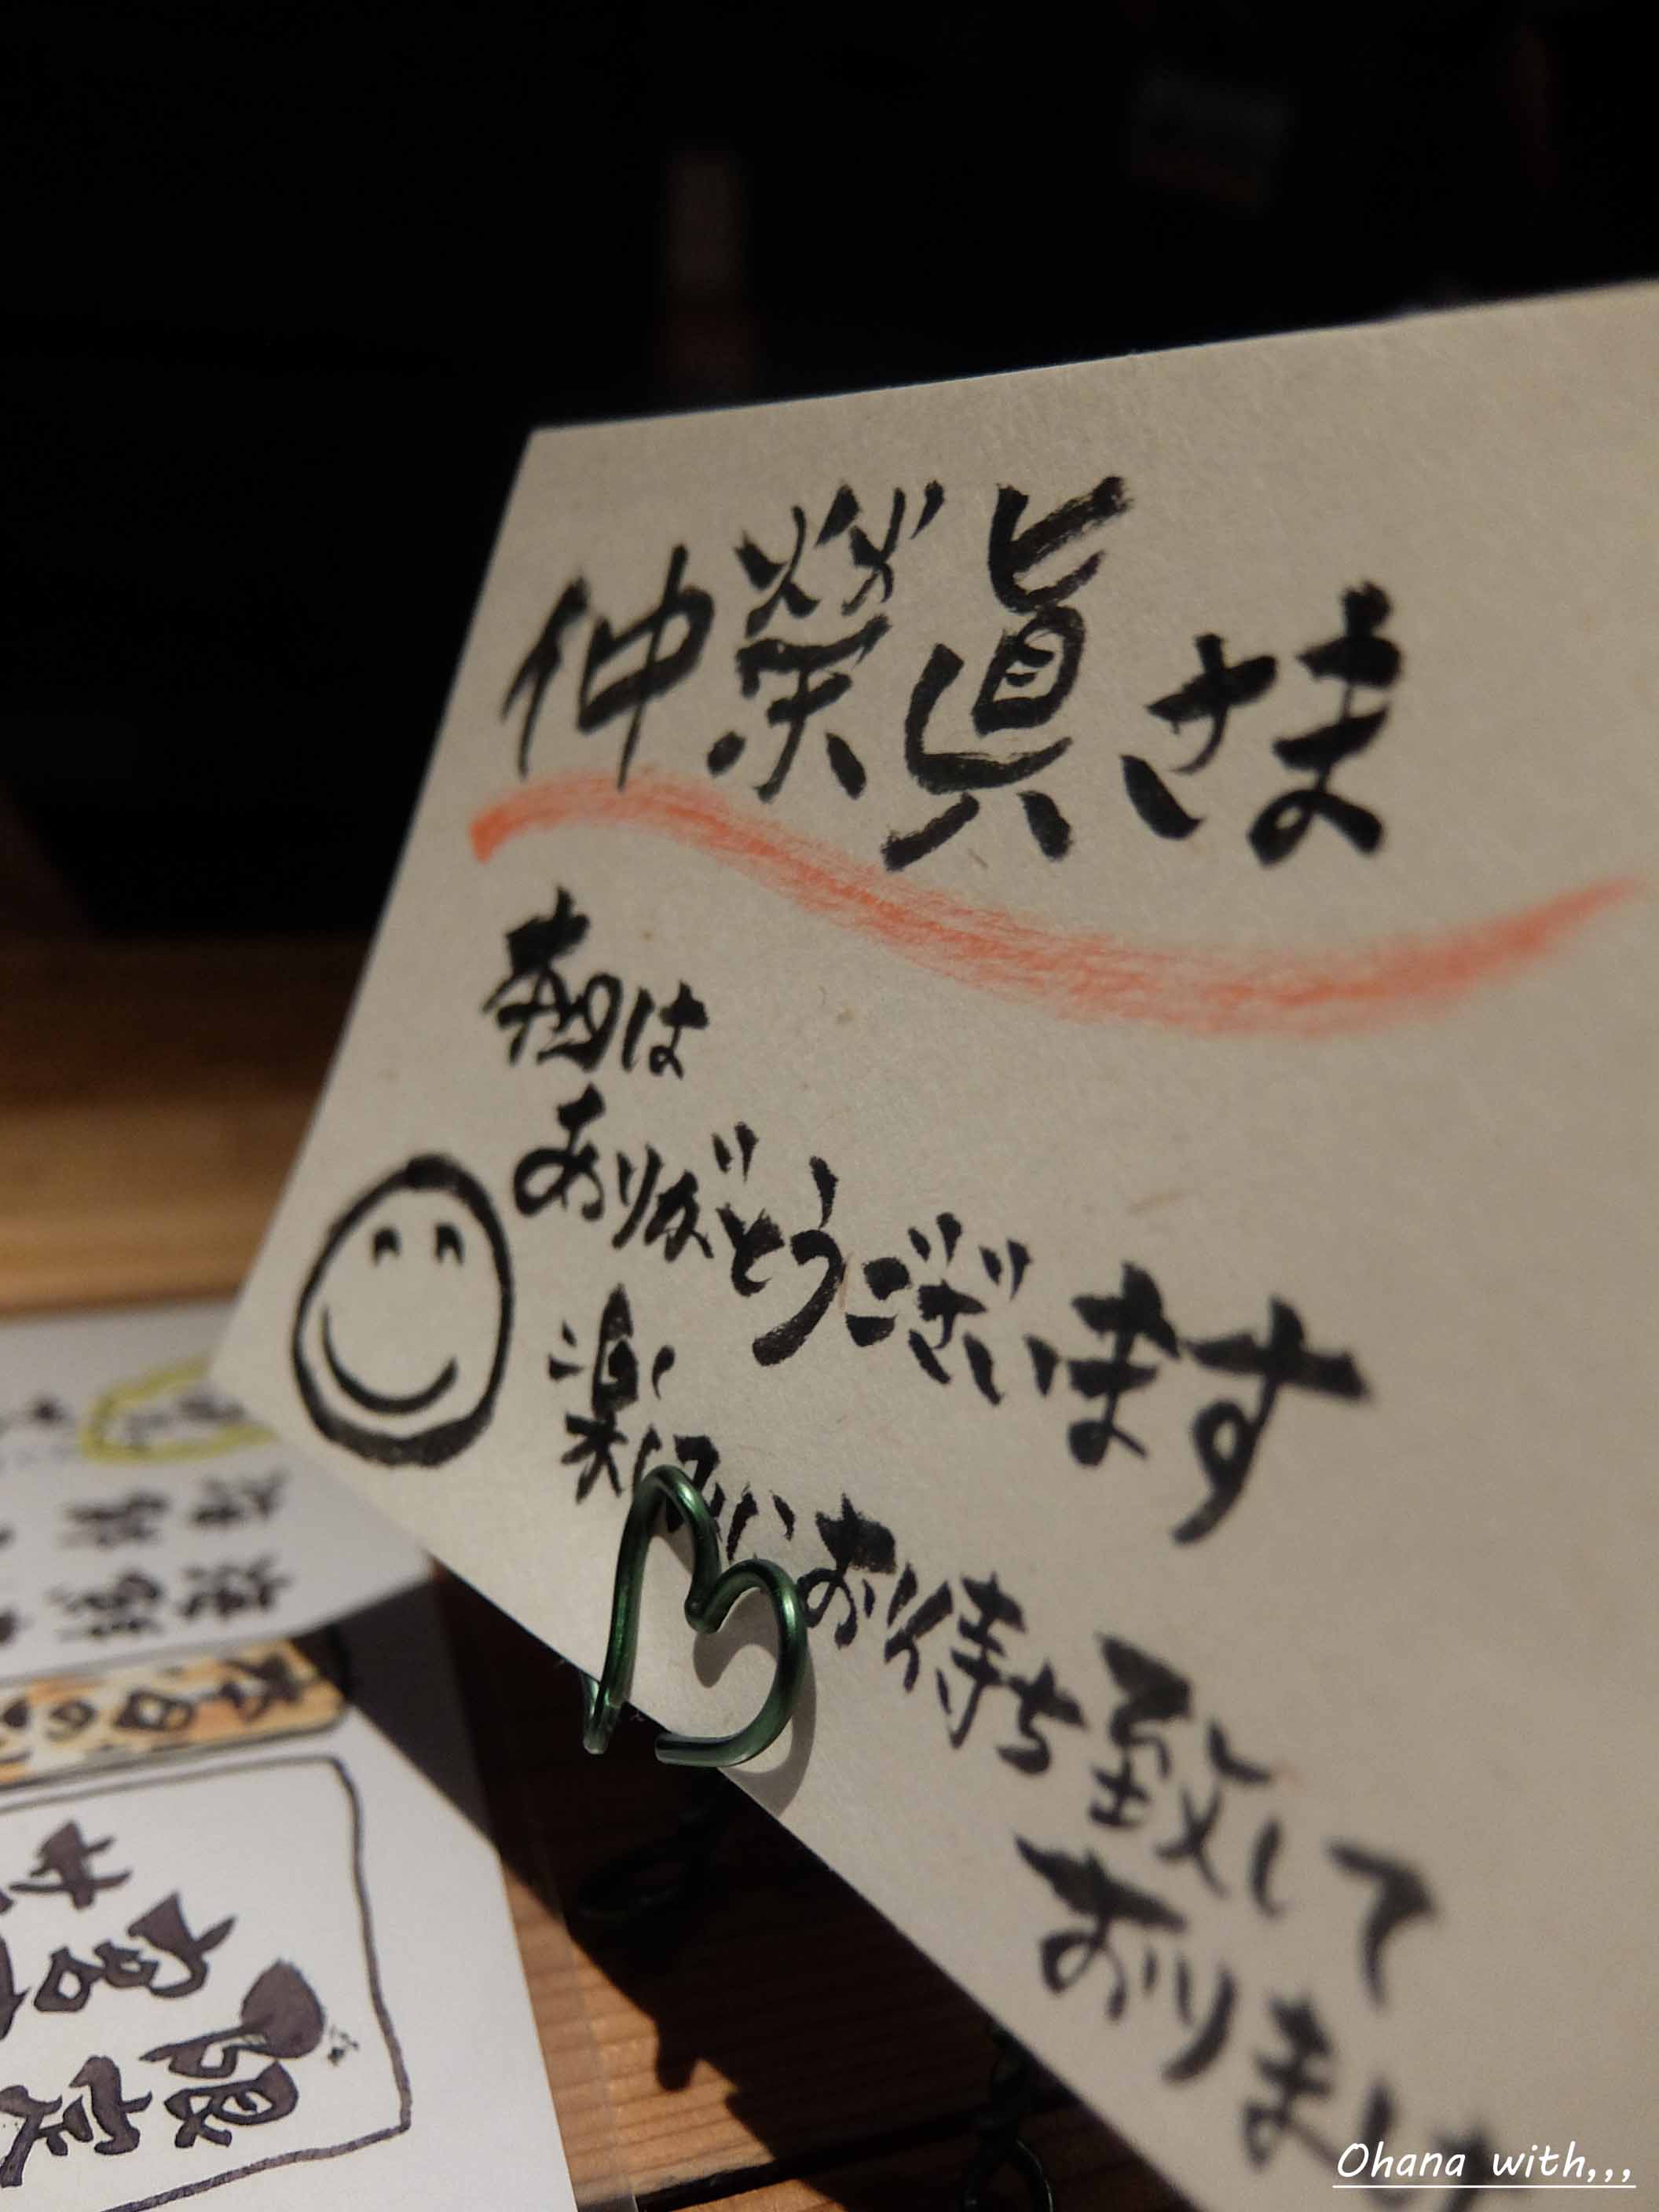 仲榮眞さま
春日は
ありがとうございます
楽しみにお待ち致して
おりまし
本日の
限定
Ohana with,,,